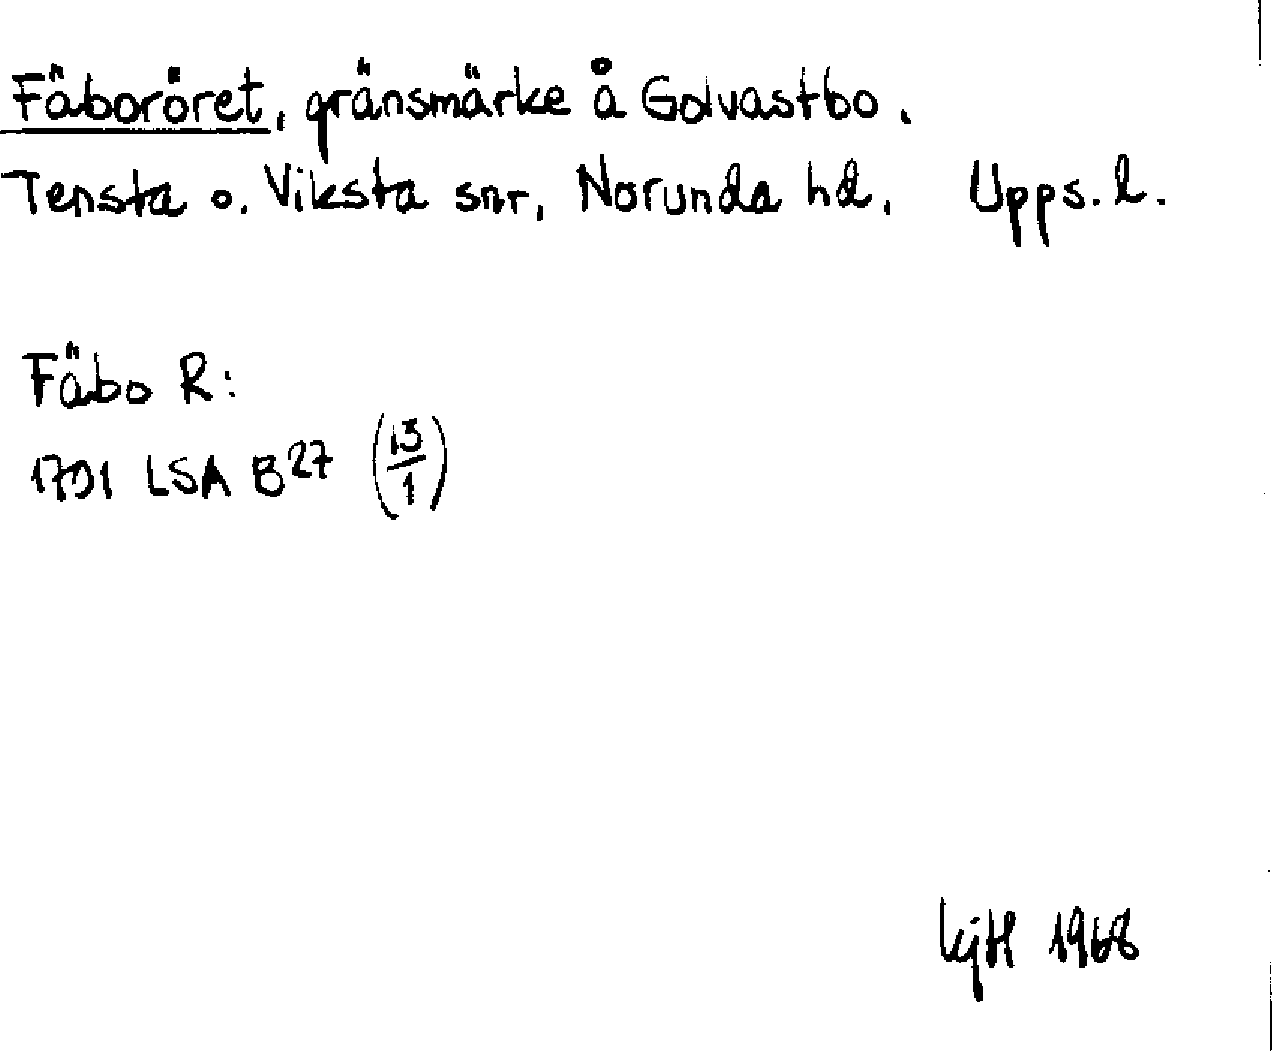 Fäboröret, gränsmärke å Golvastbo.
Tensta o. Viksta snr, Norunda hd. Upps. l.
Fäbo R:
1701 LSA B27 (13/1)
KjH 1968